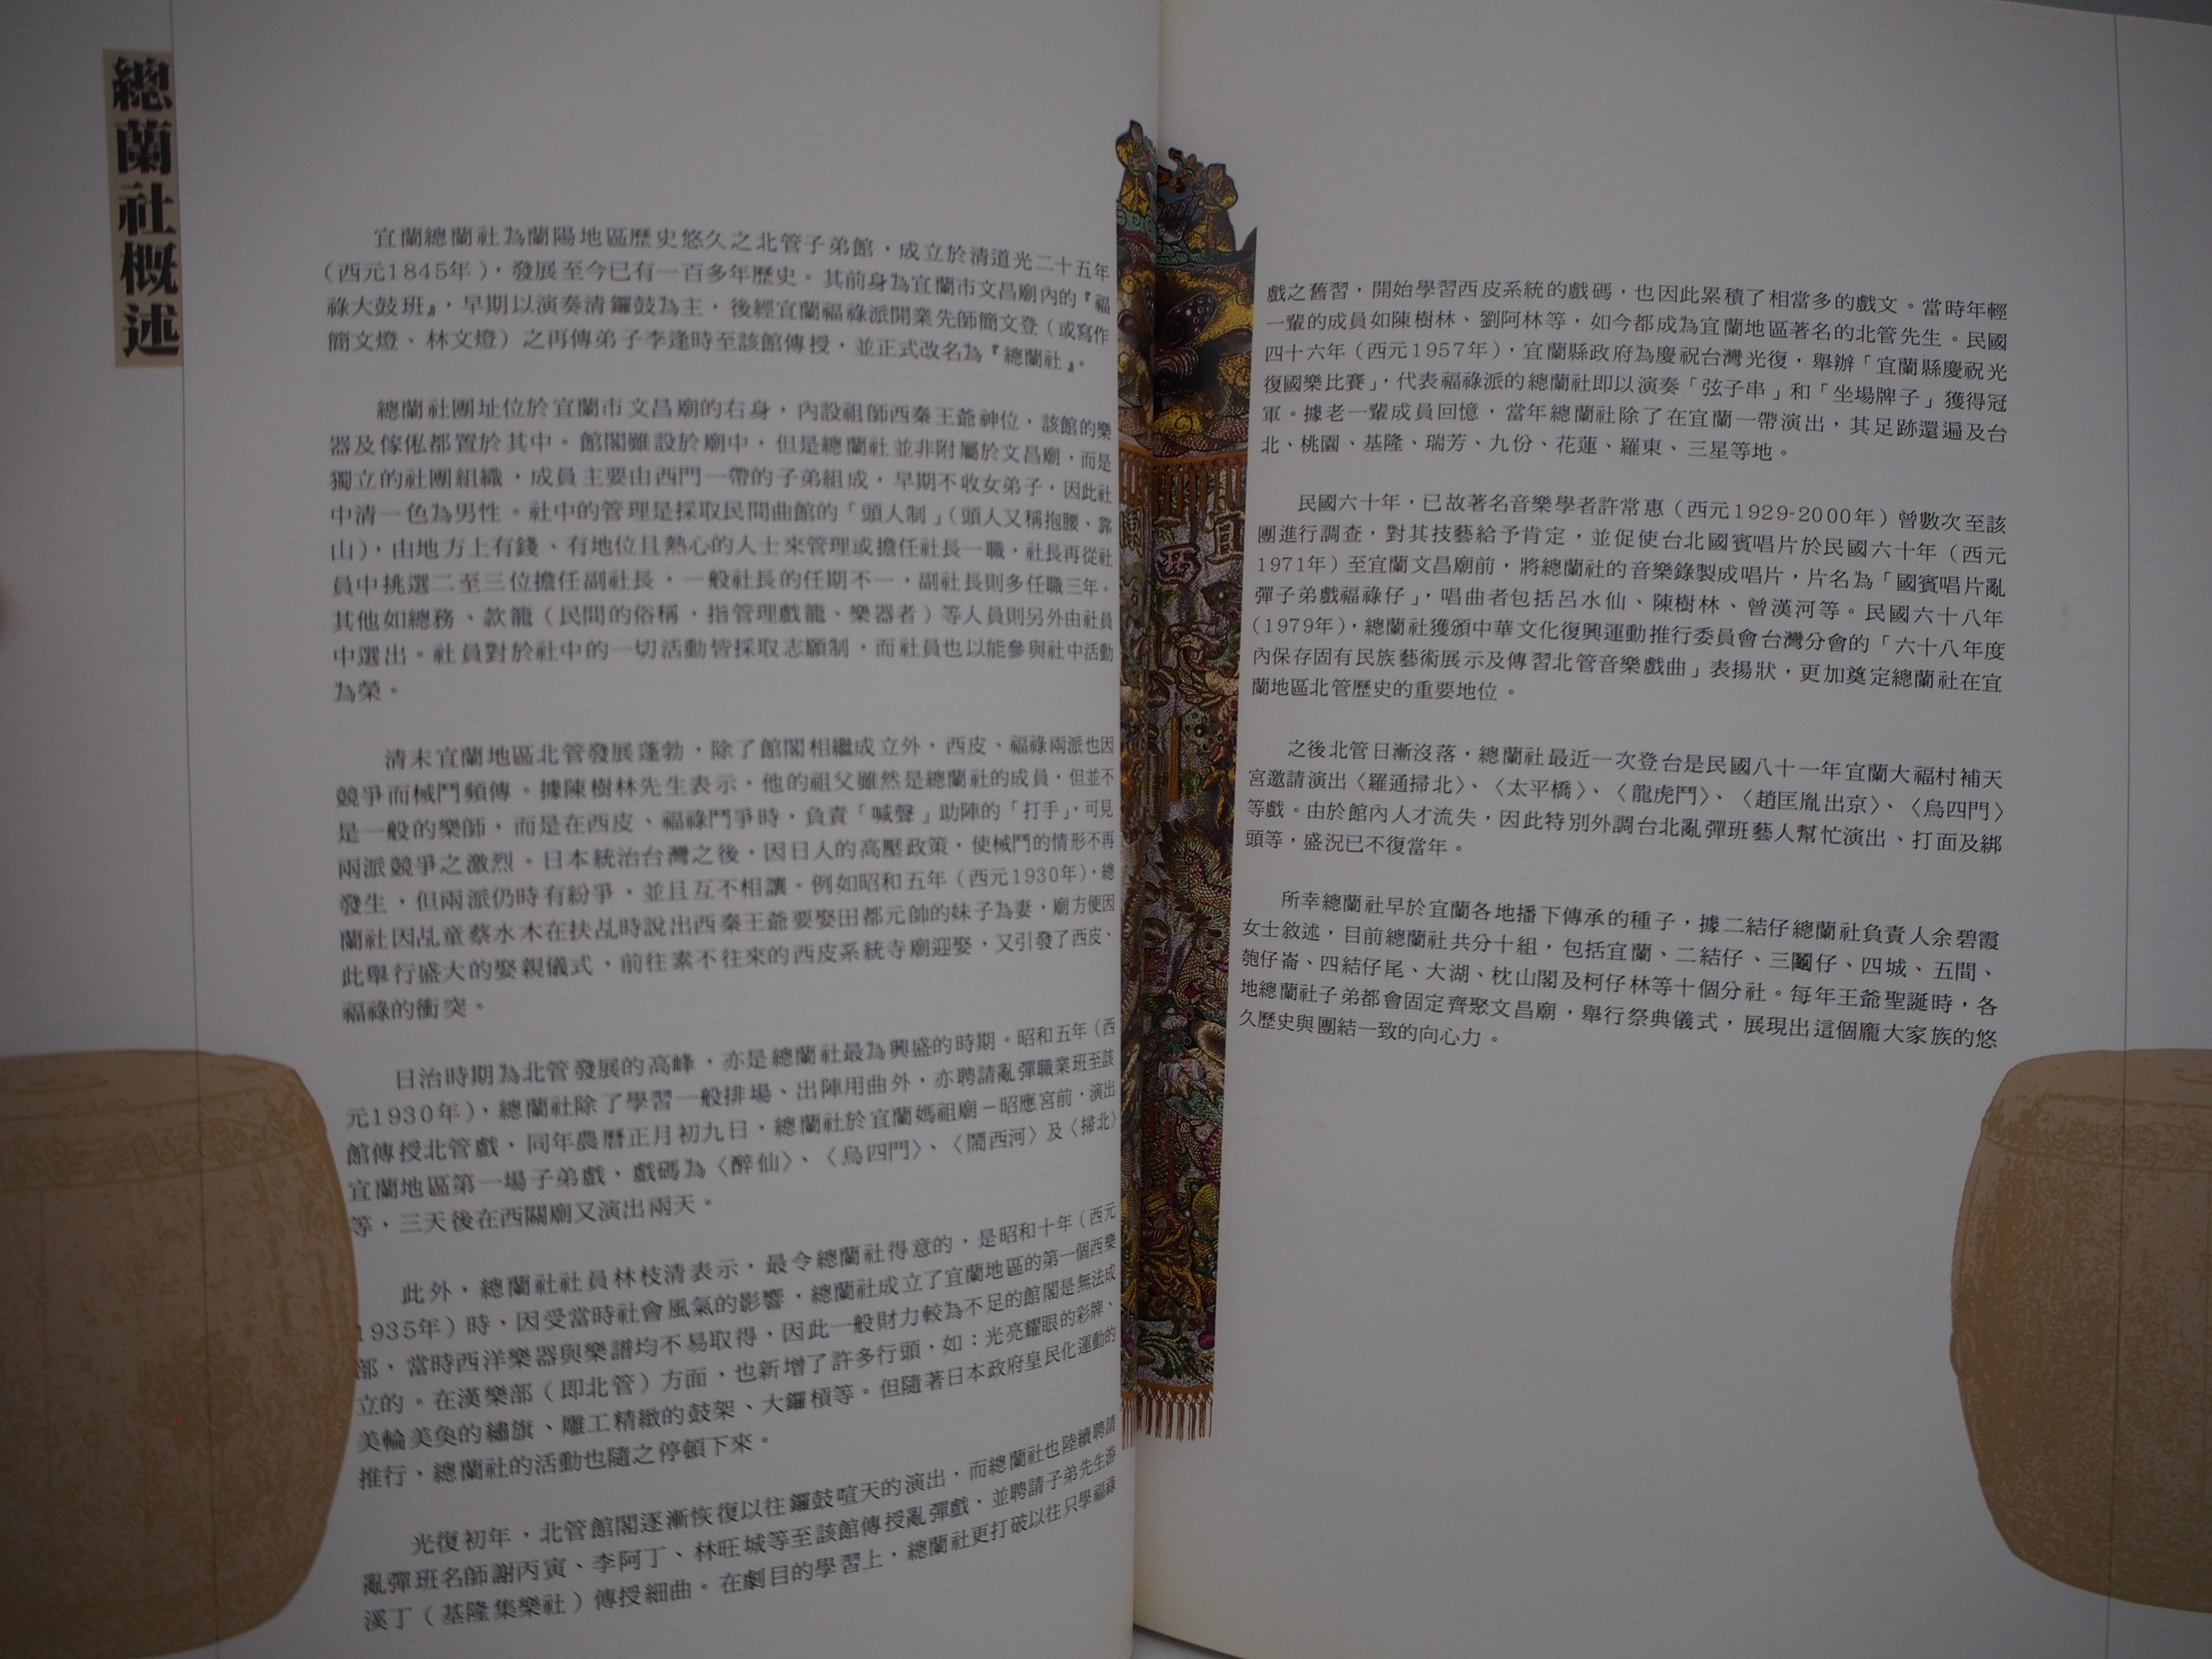 總蘭社概述
宜蘭總蘭社為蘭陽地區歷史悠久之北管子弟館，成立於清道光二十五年
（西元1845年），發展至今已有一百多年歷史。其前身為宜蘭市文昌廟內的『福
祿大鼓班』，早期以演奏清鑼鼓為主，後經宜蘭福祿派開業先師簡文登（或寫作
簡文燈、林文燈）之再傳弟子李逢時至該館傳授，並正式改名為『總蘭社』。
總蘭社團址位於宜蘭市文昌廟的右身，內設祖師西秦王爺神位，該館的樂
器及傢俬都置於其中。館閣雖設於廟中，但是總蘭社並非附屬於文昌廟，而是
獨立的社團組織，成員主要由西門一帶的子弟組成，早期不收女弟子，因此社
中清一色為男性。社中的管理是採取民間曲館的「頭人制」（頭人又稱抱腰、靠
山），由地方上有錢、有地位且熱心的人士來管理或擔任社長一職，社長再從社
員中挑選二至三位擔任副社長，一般社長的任期不一，副社長則多任職三年。
其他如總務、款籠（民間的俗稱，指管理戲籠、樂器者）等人員則另外由社員
中選出。社員對於社中的一切活動皆採取志願制，而社員也以能參與社中活動
為榮。
清末宜蘭地區北管發展蓬勃，除了館閣相繼成立外，西皮、福祿兩派也因
競爭而械鬥頻傳。據陳樹林先生表示，他的祖父雖然是總蘭社的成員，但並不
是一般的樂師，而是在西皮、福祿鬥爭時，負責「喊聲」助陣的「打手」，可見
兩派競爭之激烈。日本統治台灣之後，因日人的高壓政策，使械鬥的情形不再
發生，但兩派仍時有紛爭，並且互不相讓。例如昭和五年（西元1930年），總
蘭社因乩童蔡水木在扶乩時說出西秦王爺要娶田都元帥的妹子為妻，廟方便因
此舉行盛大的娶親儀式，前往素不往來的西皮系統寺廟迎娶，又引發了西皮、
福祿的衝突。
日治時期為北管發展的高峰，亦是總蘭社最為興盛的時期。昭和五年（西
元1930年），總蘭社除了學習一般排場、出陣用曲外，亦聘請亂彈職業班至該
館傳授北管戲，同年農曆正月初九日，總蘭社於宜蘭媽祖廟－昭應宮前，演出
宜蘭地區第一場子弟戲，戲碼為〈醉仙〉、〈烏四門〉、〈鬧西河〉及〈掃北〉
等，三天後在西關廟又演出兩天。
此外，總蘭社社員林枝清表示，最令總蘭社得意的，是昭和十年（西元
1935年）時，因受當時社會風氣的影響，總蘭社成立了宜蘭地區的第一個西樂
部，當時西洋樂器與樂譜均不易取得，因此一般財力較為不足的館閣是無法成
立的。在漢樂部（即北管）方面，也新增了許多行頭，如：光亮耀眼的彩牌、
美輪美奐的繡旗、雕工精緻的鼓架、大鑼槓等。但隨著日本政府皇民化運動的
推行，總蘭社的活動也隨之停頓下來。
光復初年，北管館閣逐漸恢復以往鑼鼓喧天的演出，而總蘭社也陸續聘請
亂彈班名師謝丙寅、李阿丁、林旺城等至該館傳授亂彈戲，並聘請子弟先生游
溪丁（基隆集樂社）傳授細曲。在劇目的學習上，總蘭社更打破以往只學福祿
戲之舊習，開始學習西皮系統的戲碼，也因此累積了相當多的戲文。當時年輕
一輩的成員如陳樹林、劉阿林等，如今都成為宜蘭地區著名的北管先生。民國
四十六年（西元1957年），宜蘭縣政府為慶祝台灣光復，舉辦「宜蘭縣慶祝光
復國樂比賽」，代表福祿派的總蘭社即以演奏「弦子串」和「坐場牌子」獲得冠
軍。據老一輩成員回憶，當年總蘭社除了在宜蘭一帶演出，其足跡還遍及台
北、桃園、基隆、瑞芳、九份、花蓮、羅東、三星等地。
民國六十年，已故著名音樂學者許常惠（西元1929-2000年）曾數次至該
團進行調查，對其技藝給予肯定，並促使台北國賓唱片於民國六十年（西元
1971年）至宜蘭文昌廟前，將總蘭社的音樂錄製成唱片，片名為「國賓唱片亂
彈子弟戲福祿仔」，唱曲者包括呂水仙、陳樹林、曾漢河等。民國六十八年
（1979年），總蘭社獲頒中華文化復興運動推行委員會台灣分會的「六十八年度
內保存固有民族藝術展示及傳習北管音樂戲曲」表揚狀，更加奠定總蘭社在宜
蘭地區北管歷史的重要地位。
之後北管日漸沒落，總蘭社最近一次登台是民國八十一年宜蘭大福村補天
宮邀請演出〈羅通掃北〉、〈太平橋〉、〈龍虎鬥〉、〈趙匡胤出京〉、〈烏四門〉
等戲。由於館內人才流失，因此特別外調台北亂彈班藝人幫忙演出、打面及綁
頭等，盛況已不復當年。
所幸總蘭社早於宜蘭各地播下傳承的種子，據二結仔總蘭社負責人余碧霞
女士敘述，目前總蘭社共分十組，包括宜蘭、二結仔、三鬮仔、四城、五間、
匏仔崙、四結仔尾、大湖、枕山閣及柯仔林等十個分社。每年王爺聖誕時，各
地總蘭社子弟都會固定齊聚文昌廟，舉行祭典儀式，展現出這個龐大家族的悠
久歷史與團結一致的向心力。